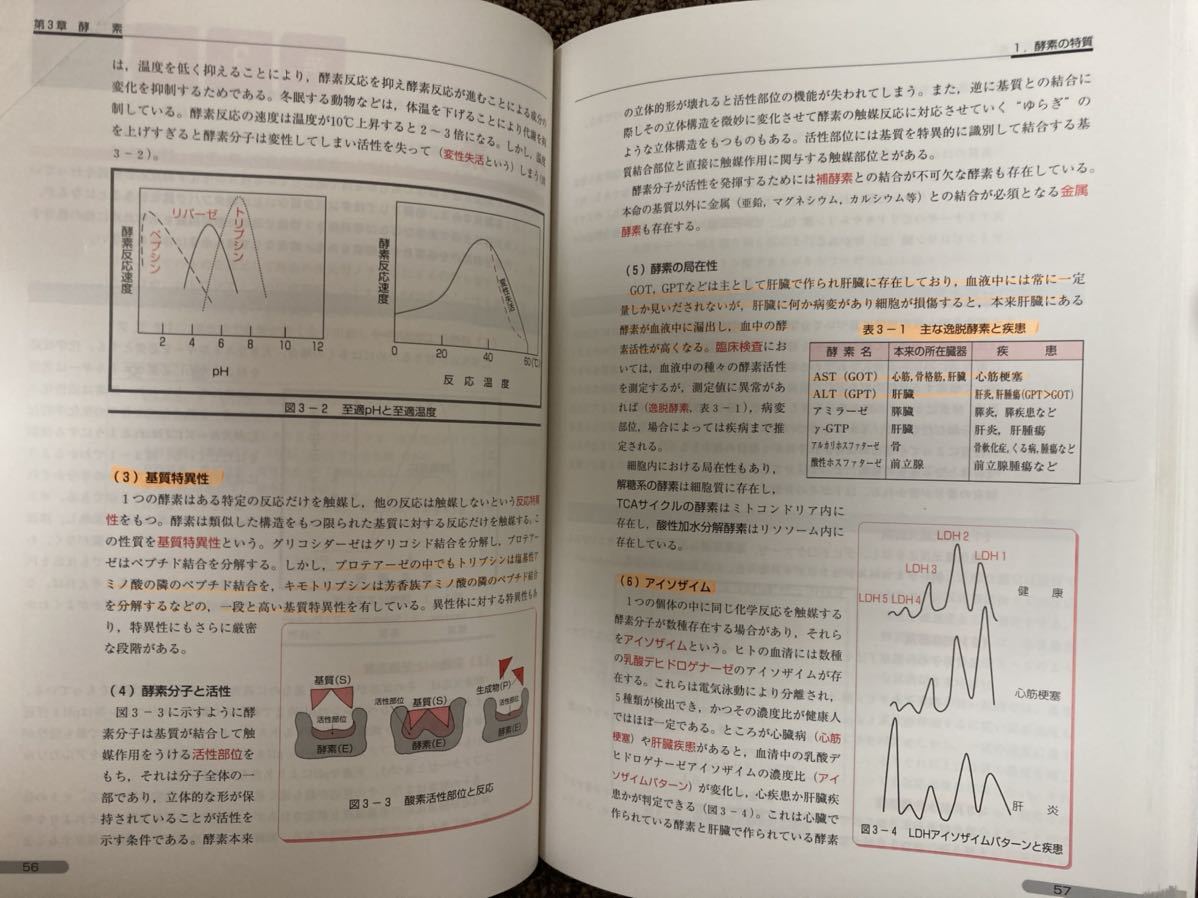 第3章 酵　素
は，温度を低く抑えることにより，酵素反応を抑え酵素反応が進むことによる成分の
変化を抑制するためである。冬眠する動物などは，体温を下げることにより代謝を抑
制している。酵素反応の速度は温度が10℃上昇すると2〜3倍になる。しかし，温度
を上げすぎると酵素分子は変性してしまい活性を失って（変性失活という）しまう（図
3－2）。
酵素反応速度
ペプシン
リパーゼ
トリプシン
2 4 6 8 10 12
pH
酵素反応速度
変性失活
0 20 40 60(℃)
反応温度
図3－2　至適pHと至適温度
（3）基質特異性
1つの酵素はある特定の反応だけを触媒し，他の反応は触媒しないという反応特異
性をもつ。酵素は類似した構造をもつ限られた基質に対する反応だけを触媒する。こ
の性質を基質特異性という。グリコシダーゼはグリコシド結合を分解し，プロテアー
ゼはペプチド結合を分解する。しかし，プロテアーゼの中でもトリプシンは塩基性ア
ミノ酸の隣のペプチド結合を，キモトリプシンは芳香族アミノ酸の隣のペプチド結合
を分解するなどの，一段と高い基質特異性を有している。異性体に対する特異性もあ
り，特異性にもさらに厳密
な段階がある。
（4）酵素分子と活性
図3－3に示すように酵
素分子は基質が結合して触
媒作用をうける活性部位を
もち，それは分子全体の一
部であり，立体的な形が保
持されていることが活性を
示す条件である。酵素本来
基質(S)
活性部位
酵素(E)
活性部位
基質(S)
酵素(E)
生成物(P)
活性部位
酵素(E)
図3－3　酸素活性部位と反応
56
1．酵素の特質
の立体的形が壊れると活性部位の機能が失われてしまう。また，逆に基質との結合に
際しその立体構造を微妙に変化させて酵素の触媒反応に対応させていく“ゆらぎ”の
ような立体構造をもつものもある。活性部位には基質を特異的に識別して結合する基
質結合部位と直接に触媒作用に関与する触媒部位とがある。
酵素分子が活性を発揮するためには補酵素との結合が不可欠な酵素も存在している。
本命の基質以外に金属（亜鉛，マグネシウム，カルシウム等）との結合が必須となる金属
酵素も存在する。
（5）酵素の局在性
GOT，GPTなどは主として肝臓で作られ肝臓に存在しており，血液中には常に一定
量しか見いだされないが，肝臓に何か病変があり細胞が損傷すると，本来肝臓にある
酵素が血液中に漏出し，血中の酵
素活性が高くなる。臨床検査にお
いては，血液中の種々の酵素活性
を測定するが，測定値に異常があ
れば（逸脱酵素，表3－1），病変
部位，場合によっては疾病まで推
定される。
細胞内における局在性もあり，
解糖系の酵素は細胞質に存在し，
TCAサイクルの酵素はミトコンドリア内に
存在し，酸性加水分解酵素はリソソーム内に
存在している。
表3－1　主な逸脱酵素と疾患
酵素名 本来の所在臓器 疾　患
AST（GOT） 心筋，骨格筋，肝臓 心筋梗塞
ALT（GPT） 肝臓 肝炎，肝腫瘍（GPT＞GOT）
アミラーゼ 膵臓 膵炎，膵疾患など
γ-GTP 肝臓 肝炎，肝腫瘍
アルカリホスファターゼ 骨 骨軟化症，くる病，腫瘍など
酸性ホスファターゼ 前立腺 前立腺腫瘍など
（6）アイソザイム
1つの個体の中に同じ化学反応を触媒する
酵素分子が数種存在する場合があり，それら
をアイソザイムという。ヒトの血清には数種
の乳酸デヒドロゲナーゼのアイソザイムが存
在する。これらは電気泳動により分離され，
5種類が検出でき，かつその濃度比が健康人
ではほぼ一定である。ところが心臓病（心筋
梗塞）や肝臓疾患があると，血清中の乳酸デ
ヒドロゲナーゼアイソザイムの濃度比（アイ
ソザイムパターン）が変化し，心疾患か肝臓疾
患かが判定できる（図3－4）。これは心臓で
作られている酵素と肝臓で作られている酵素
LDH 2
LDH 1
LDH 3
LDH 5 LDH 4
健　康
心筋梗塞
肝　炎
図3－4　LDHアイソザイムパターンと疾患
57